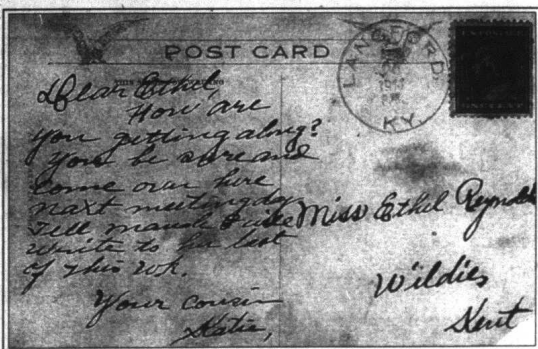 POST CARD
LANGFORD
KY.
Dear Ethel
How are
you getting along?
You be sure and
come over here
next meeting day
Tell I will
write to her last
of this wk.
Your cousin
Katie,
Miss Ethel Reynolds
Wildie,
Kent